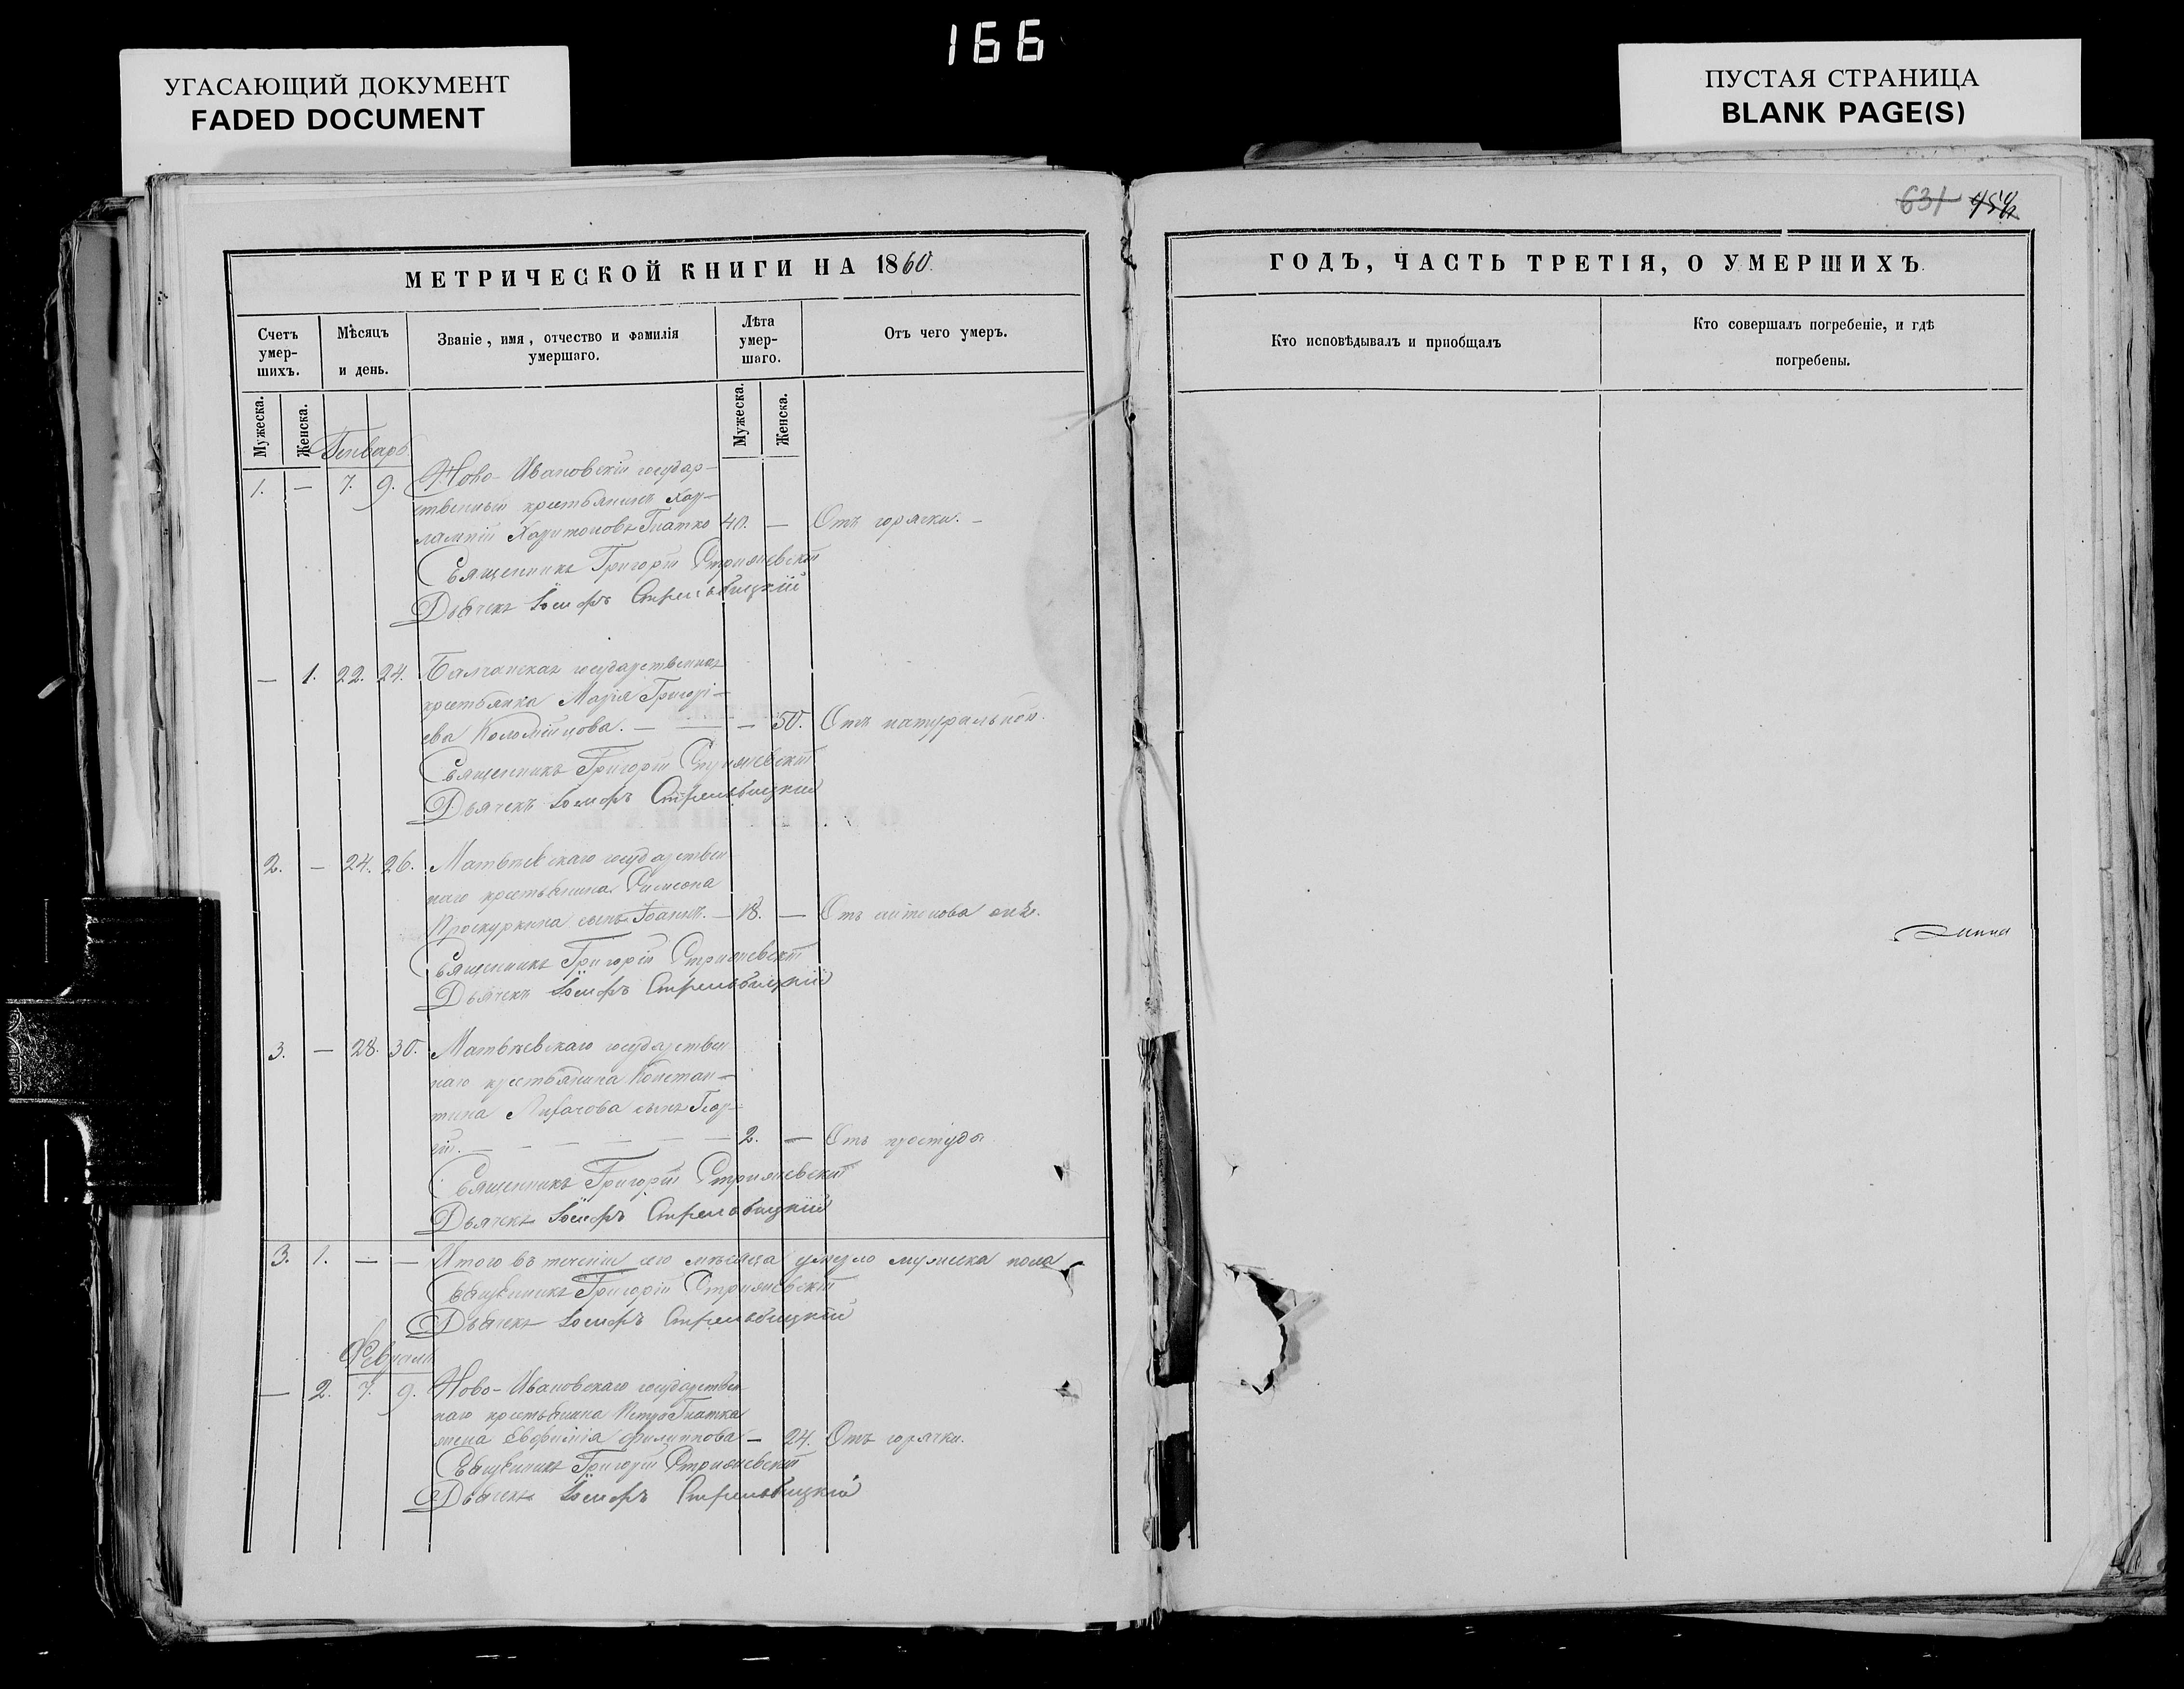 166
УГАСАЮЩИЙ ДОКУМЕНТ
FADED DOCUMENT
ПУСТАЯ СТРАНИЦА
BLANK PAGE(S)
631
МЕТРИЧЕСКОЙ КНИГИ НА 1860.
Счетъ умер-шихъ.
Мѣсяцъ и день.
Званіе, имя, отчество и фамилія умершаго.
Лѣта умер-шаго.
Отъ чего умеръ.
Мужеска.
Женска.
Мужеска.
Женска.
Генварь
1. — 7. 9. Ново-Ивановскій государ-
ственный крестьянинъ Хар-
лампій Харитоновъ Гнатко 40. — Отъ горячки. —
Священникъ Григорій
Дьячекъ Іосифъ Стрельбицкій
— 1. 22. 24. государственная
крестьянка Марія Григорі-
ева Коломійцова. — — — 50. Отъ натуральной.
Священникъ Григорій
Дьячекъ Іосифъ Стрельбицкій
2. — 24. 26. Матвѣевскаго государствен
наго крестьянина Симеона
Проскурина сынъ Іоаннъ. — 18. — Отъ антонова
Священникъ Григорій
Дьячекъ Іосифъ Стрельбицкій
3. — 28. 30. Матвѣевскаго государствен
наго крестьянина Констан-
тина сынъ Геор-
гій. — — — — — — 2. — Отъ простуды
Священникъ Григорій
Дьячекъ Іосифъ Стрельбицкій
3. 1. — — Итого въ теченіи сего мѣсяца умерло мужеска пола
Священникъ Григорій
Дьячекъ Іосифъ Стрельбицкій
Февраль
— 2. 7. 9. Ново-Ивановскаго государствен
наго крестьянина Петра Гнатка
жена Евфимія Филиппова — 24. Отъ горячки.
Священникъ Григорій
Дьячекъ Іосифъ Стрельбицкій
ГОДЪ, ЧАСТЬ ТРЕТІЯ, О УМЕРШИХЪ.
Кто исповѣдывалъ и пріобщалъ
Кто совершалъ погребеніе, и гдѣ
погребены.